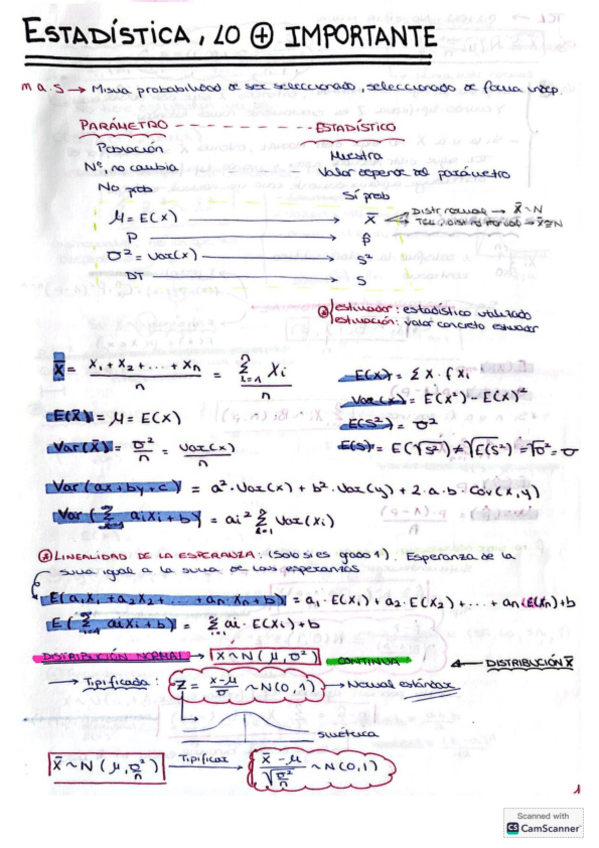 ESTADÍSTICA, LO ⊕ IMPORTANTE
m a.s → Misma probabilidad de ser seleccionado, seleccionado de forma indep.
PARÁMETRO - - - - - - - - - - ESTADÍSTICO
Población Muestra
Nº, no cambia Valor depende del parámetro
No prob Sí prob
μ = E(X) → x̄ Distr. normal → X̄ ~ N
TCL, distr no normal → X̄ ≅ N
P → p̂
σ² = Var(x) → S²
DT → S
estimador: estadístico utilizado
estimación: valor concreto estimador
X̄ = (X₁ + X₂ + ... + Xn)/n = Σ(i=1, n) Xi / n
E(X) = Σ x · f xi
Var(x) = E(X²) - E(X)²
E(X̄) = μ = E(X)
E(S²) = σ²
Var(X̄) = σ²/n = Var(x)/n
E(S) = E(√S²) ≠ √E(S²) = √σ² = σ
Var (ax + by + c) = a² · Var(x) + b² · Var(y) + 2 · a · b · Cov(x, y)
Var (Σ aiXi + b) = ai² Σ(i=1, n) Var(Xi)
LINEALIDAD DE LA ESPERANZA: (Solo si es grado 1). Esperanza de la
suma igual a la suma de las esperanzas
E(a₁X₁ + a₂X₂ + ... + an Xn + b) = a₁ · E(X₁) + a₂ · E(X₂) + ... + an · E(Xn) + b
E (Σ aiXi + b) = Σ ai · E(Xi) + b
DISTRIBUCIÓN NORMAL → X ~ N (μ, σ²) CONTINUA ← DISTRIBUCIÓN X̄
→ Tipificada: Z = (x-μ)/σ ~ N(0,1) → Normal estándar
simétrica
X̄ ~ N (μ, σ²/n) Tipificar → (X̄ - μ)/√(σ²/n) ~ N(0,1)
1
Scanned with
CS CamScanner